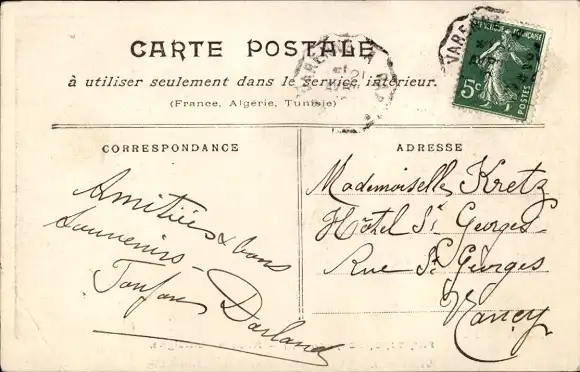 CARTE POSTALE
à utiliser seulement dans le service intérieur.
(France, Algérie, Tunisie)
5c
POSTES
CORRESPONDANCE
Amitiés & bons
souvenirs
Darland
ADRESSE
Mademoiselle Kretz
Hôtel St Georges
Rue St Georges
Nancy